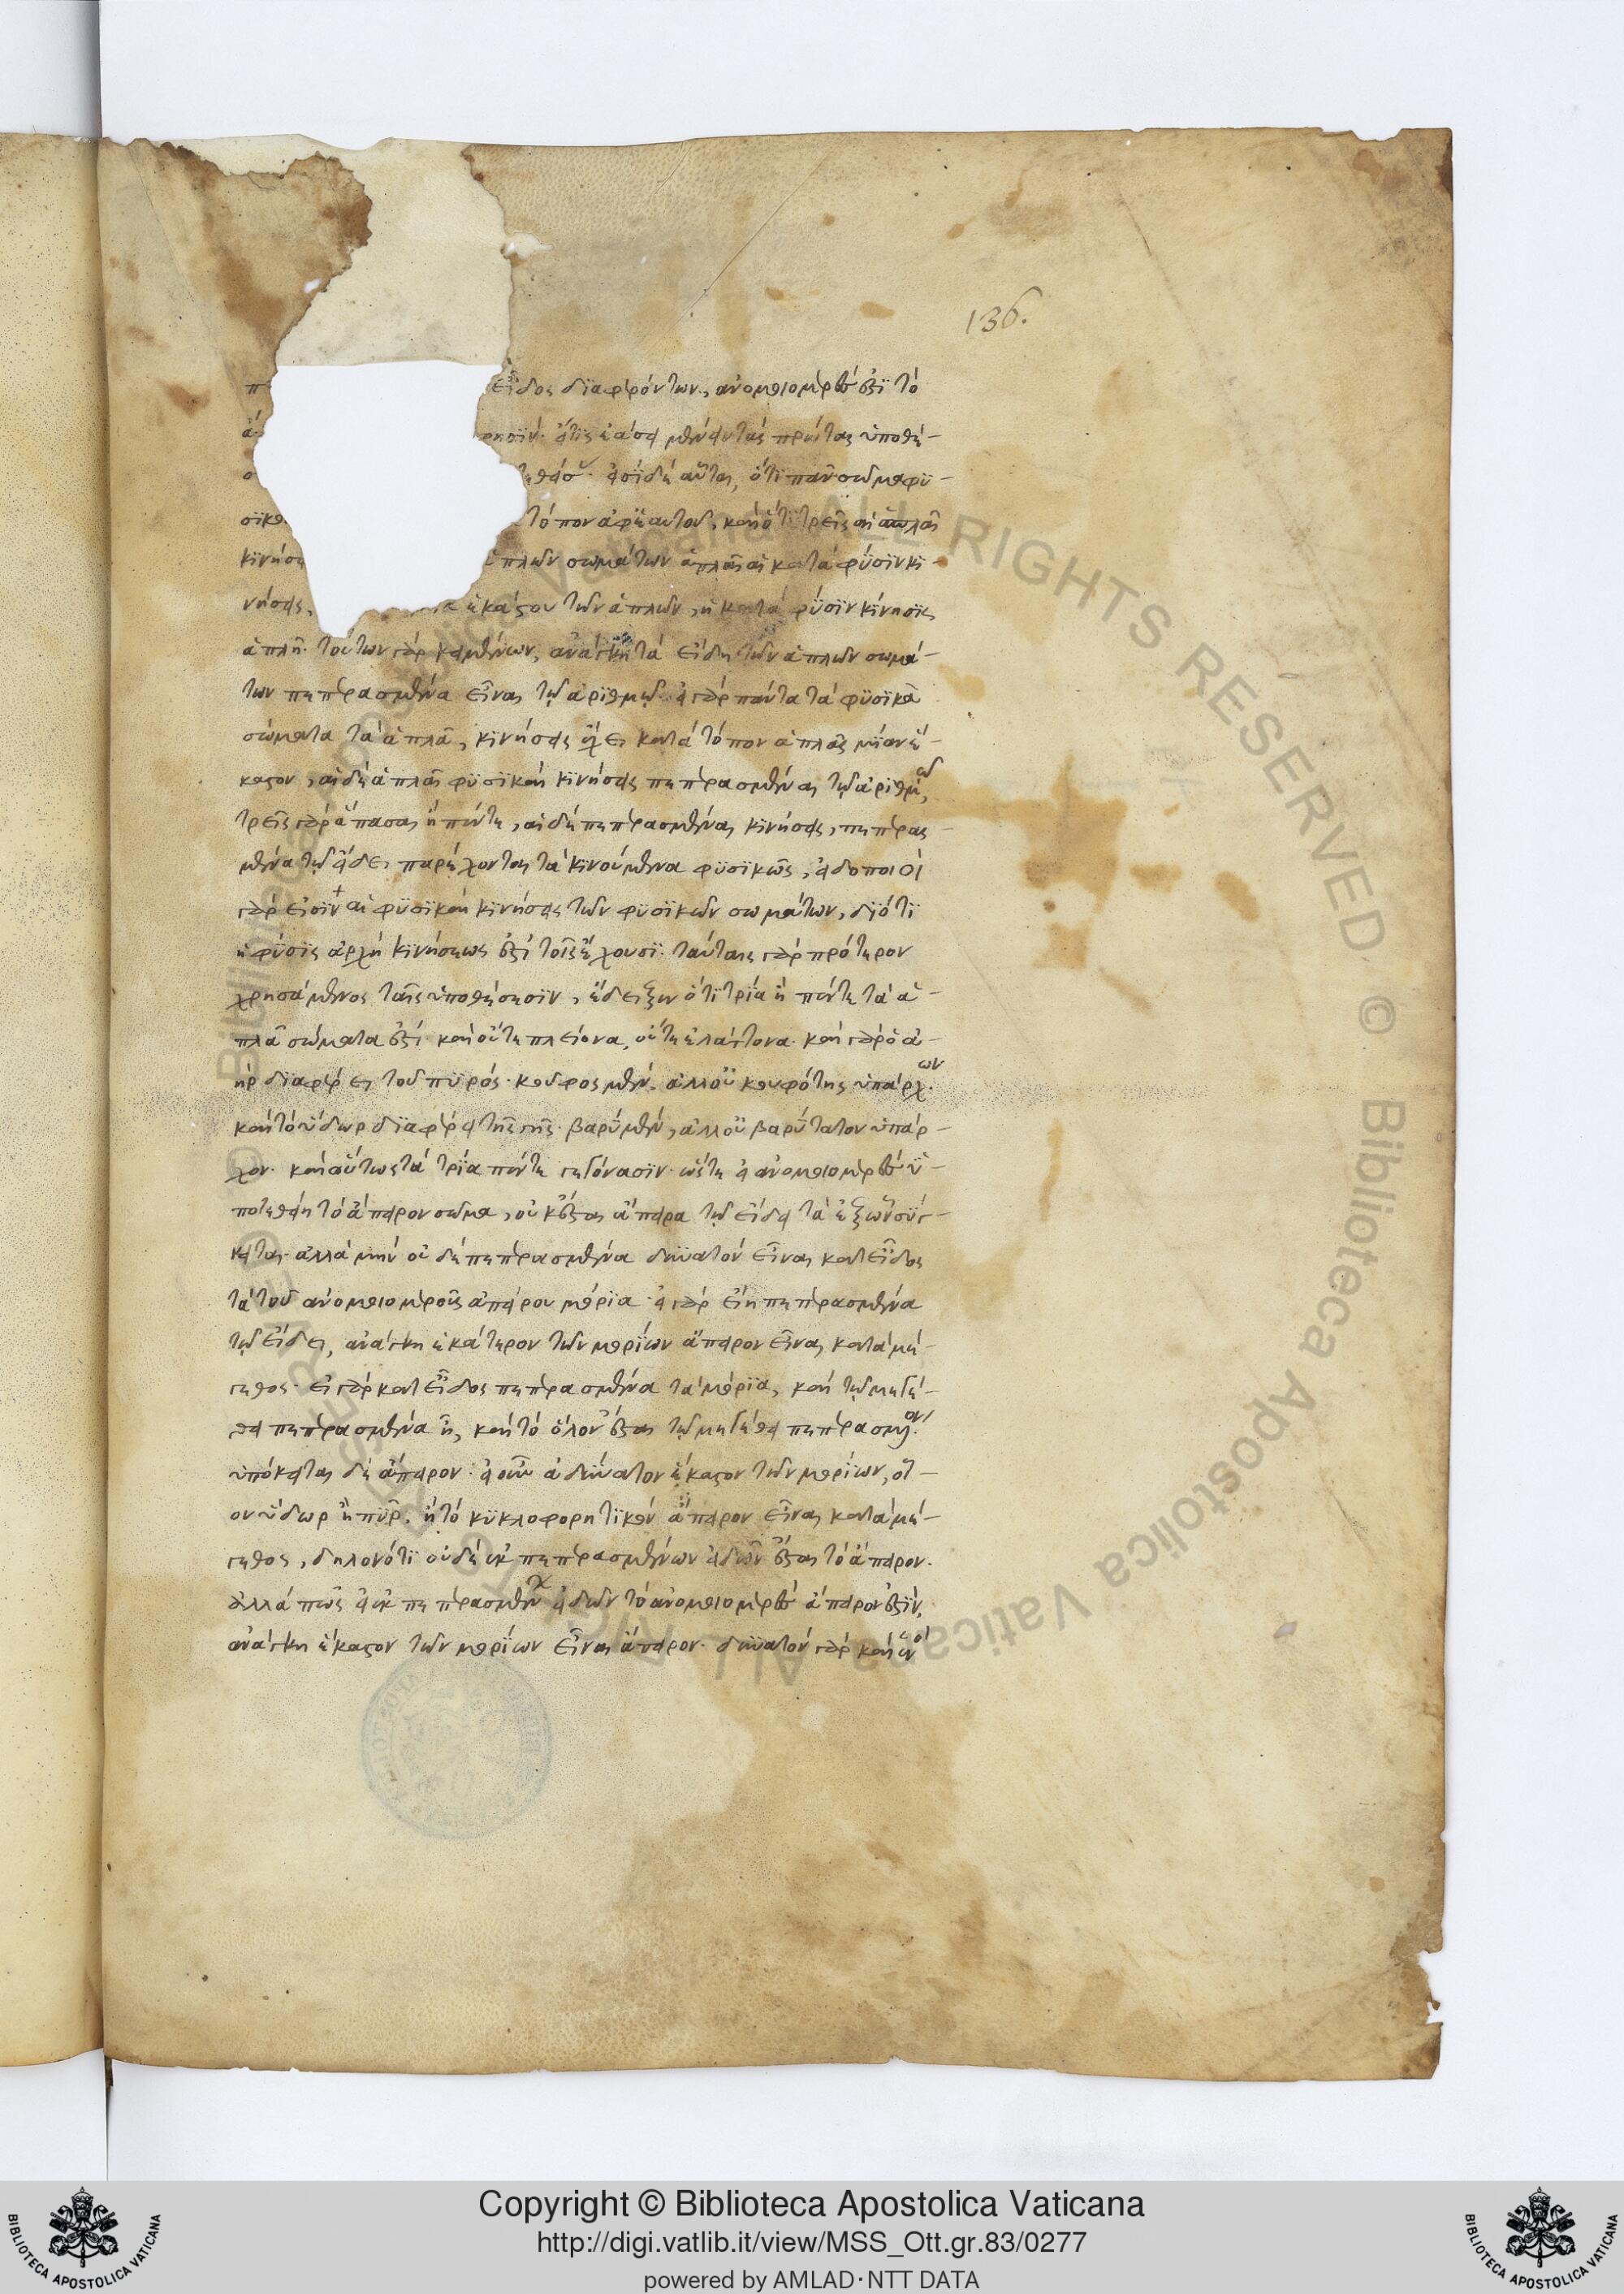 136.
εἶδος διαφερόντων, ἀνομοιομερές ἐστι τὸ
πρώτας ὑποθέ-
αὗται, ὅτι πᾶν σῶμα φυ-
σικὸ τόπον ἀφ' ἑαυτοῦ, καὶ ὅτι τρεῖς αἱ ἁπλαῖ
κινήσε ἁπλῶν σωμάτων ἁπλαῖ αἱ κατὰ φύσιν κι-
νήσεις, ἑκάστου τῶν ἁπλῶν, ἡ κατὰ φύσιν κίνησις
ἁπλῆ. τούτων γὰρ κειμένων, ἀνάγκη τὰ εἴδη τῶν ἁπλῶν σωμά-
των πεπερασμένα εἶναι τῷ ἀριθμῷ. εἰ γὰρ πάντα τὰ φυσικὰ
σώματα τὰ ἁπλᾶ, κινήσεις ἔχει κατὰ τόπον ἁπλᾶς μίαν ἕ-
καστον, αἱ δὲ ἁπλαῖ φυσικαὶ κινήσεις πεπερασμέναι τῷ ἀριθμῷ,
τρεῖς γὰρ ἅπασαι ἢ πέντε, αἱ δὲ πεπερασμέναι κινήσεις, πεπερασ-
μένα τῷ εἴδει παρέχονται τὰ κινούμενα φυσικῶς, εἰδοποιοὶ
γάρ εἰσιν αἱ φυσικαὶ κινήσεις τῶν φυσικῶν σωμάτων, διότι
ἡ φύσις ἀρχὴ κινήσεως ἐστὶ τοῖς ἔχουσι. ταύταις γὰρ πρότερον
χρησάμενος ταῖς ὑποθέσεσιν, ἔδειξεν ὅτι τρία ἢ πέντε τὰ ἁ-
πλᾶ σώματα ἐστὶ. καὶ οὔτε πλείονα, οὔτε ἐλάττονα. καὶ γὰρ ὁ ἀ-
ὴρ διαφέρει τοῦ πυρός. κοῦφος μὲν, ἀλλ' οὐ κουφότης ὑπάρχων.
καὶ τὸ ὕδωρ διαφέρει τῆς γῆς. βαρὺ μὲν, ἀλλ' οὐ βαρύτατον ὑπάρ-
χον. καὶ οὕτως τὰ τρία πέντε γεγόνασιν. ὥστε εἰ ἀνομοιομερὲς ὑ-
ποτεθείη τὸ ἄπειρον σῶμα, οὐκ ἔσται ἄπειρα τῷ εἴδει τὰ ἐξ ὧν σύγ-
κειται. ἀλλὰ μὴν οὐδὲ πεπερασμένα δυνατὸν εἶναι κατ' εἶδος
τὰ τοῦ ἀνομοιομεροῦς ἀπείρου μόρια. εἰ γὰρ εἴη πεπερασμένα
τῷ εἴδει, ἀνάγκη ἑκάτερον τῶν μορίων ἄπειρον εἶναι κατὰ μέ-
γεθος. εἰ γὰρ κατ' εἶδος πεπερασμένα τὰ μόρια, καὶ τῷ μεγέ-
θει πεπερασμένα ᾖ, καὶ τὸ ὅλον ἔσται τῷ μεγέθει πεπερασμένον.
ὑπόκειται δὲ ἄπειρον. εἰ οὖν ἀδύνατον ἕκαστον τῶν μορίων, οἷ-
ον ὕδωρ ἢ πῦρ, ἢ τὸ κυκλοφορητικὸν ἄπειρον εἶναι κατὰ μέ-
γεθος, δηλονότι οὐδὲ ἐκ πεπερασμένων εἰδῶν ἔσται τὸ ἄπειρον.
ἀλλὰ πῶς εἰ ἐκ πεπερασμένων εἰδῶν τὸ ἀνομοιομερὲς ἄπειρον ἐστίν,
ἀνάγκη ἕκαστον τῶν μορίων εἶναι ἄπειρον. δυνατὸν γὰρ καὶ
Copyright © Biblioteca Apostolica Vaticana
http://digi.vatlib.it/view/MSS_Ott.gr.83/0277
powered by AMLAD·NTT DATA
BIBLIOTECA APOSTOLICA VATICANA
BIBLIOTECA APOSTOLICA VATICANA
© Biblioteca Apostolica Vaticana ALL RIGHTS RESERVED © Biblioteca Apostolica Vaticana ALL RIGHTS RESERVED